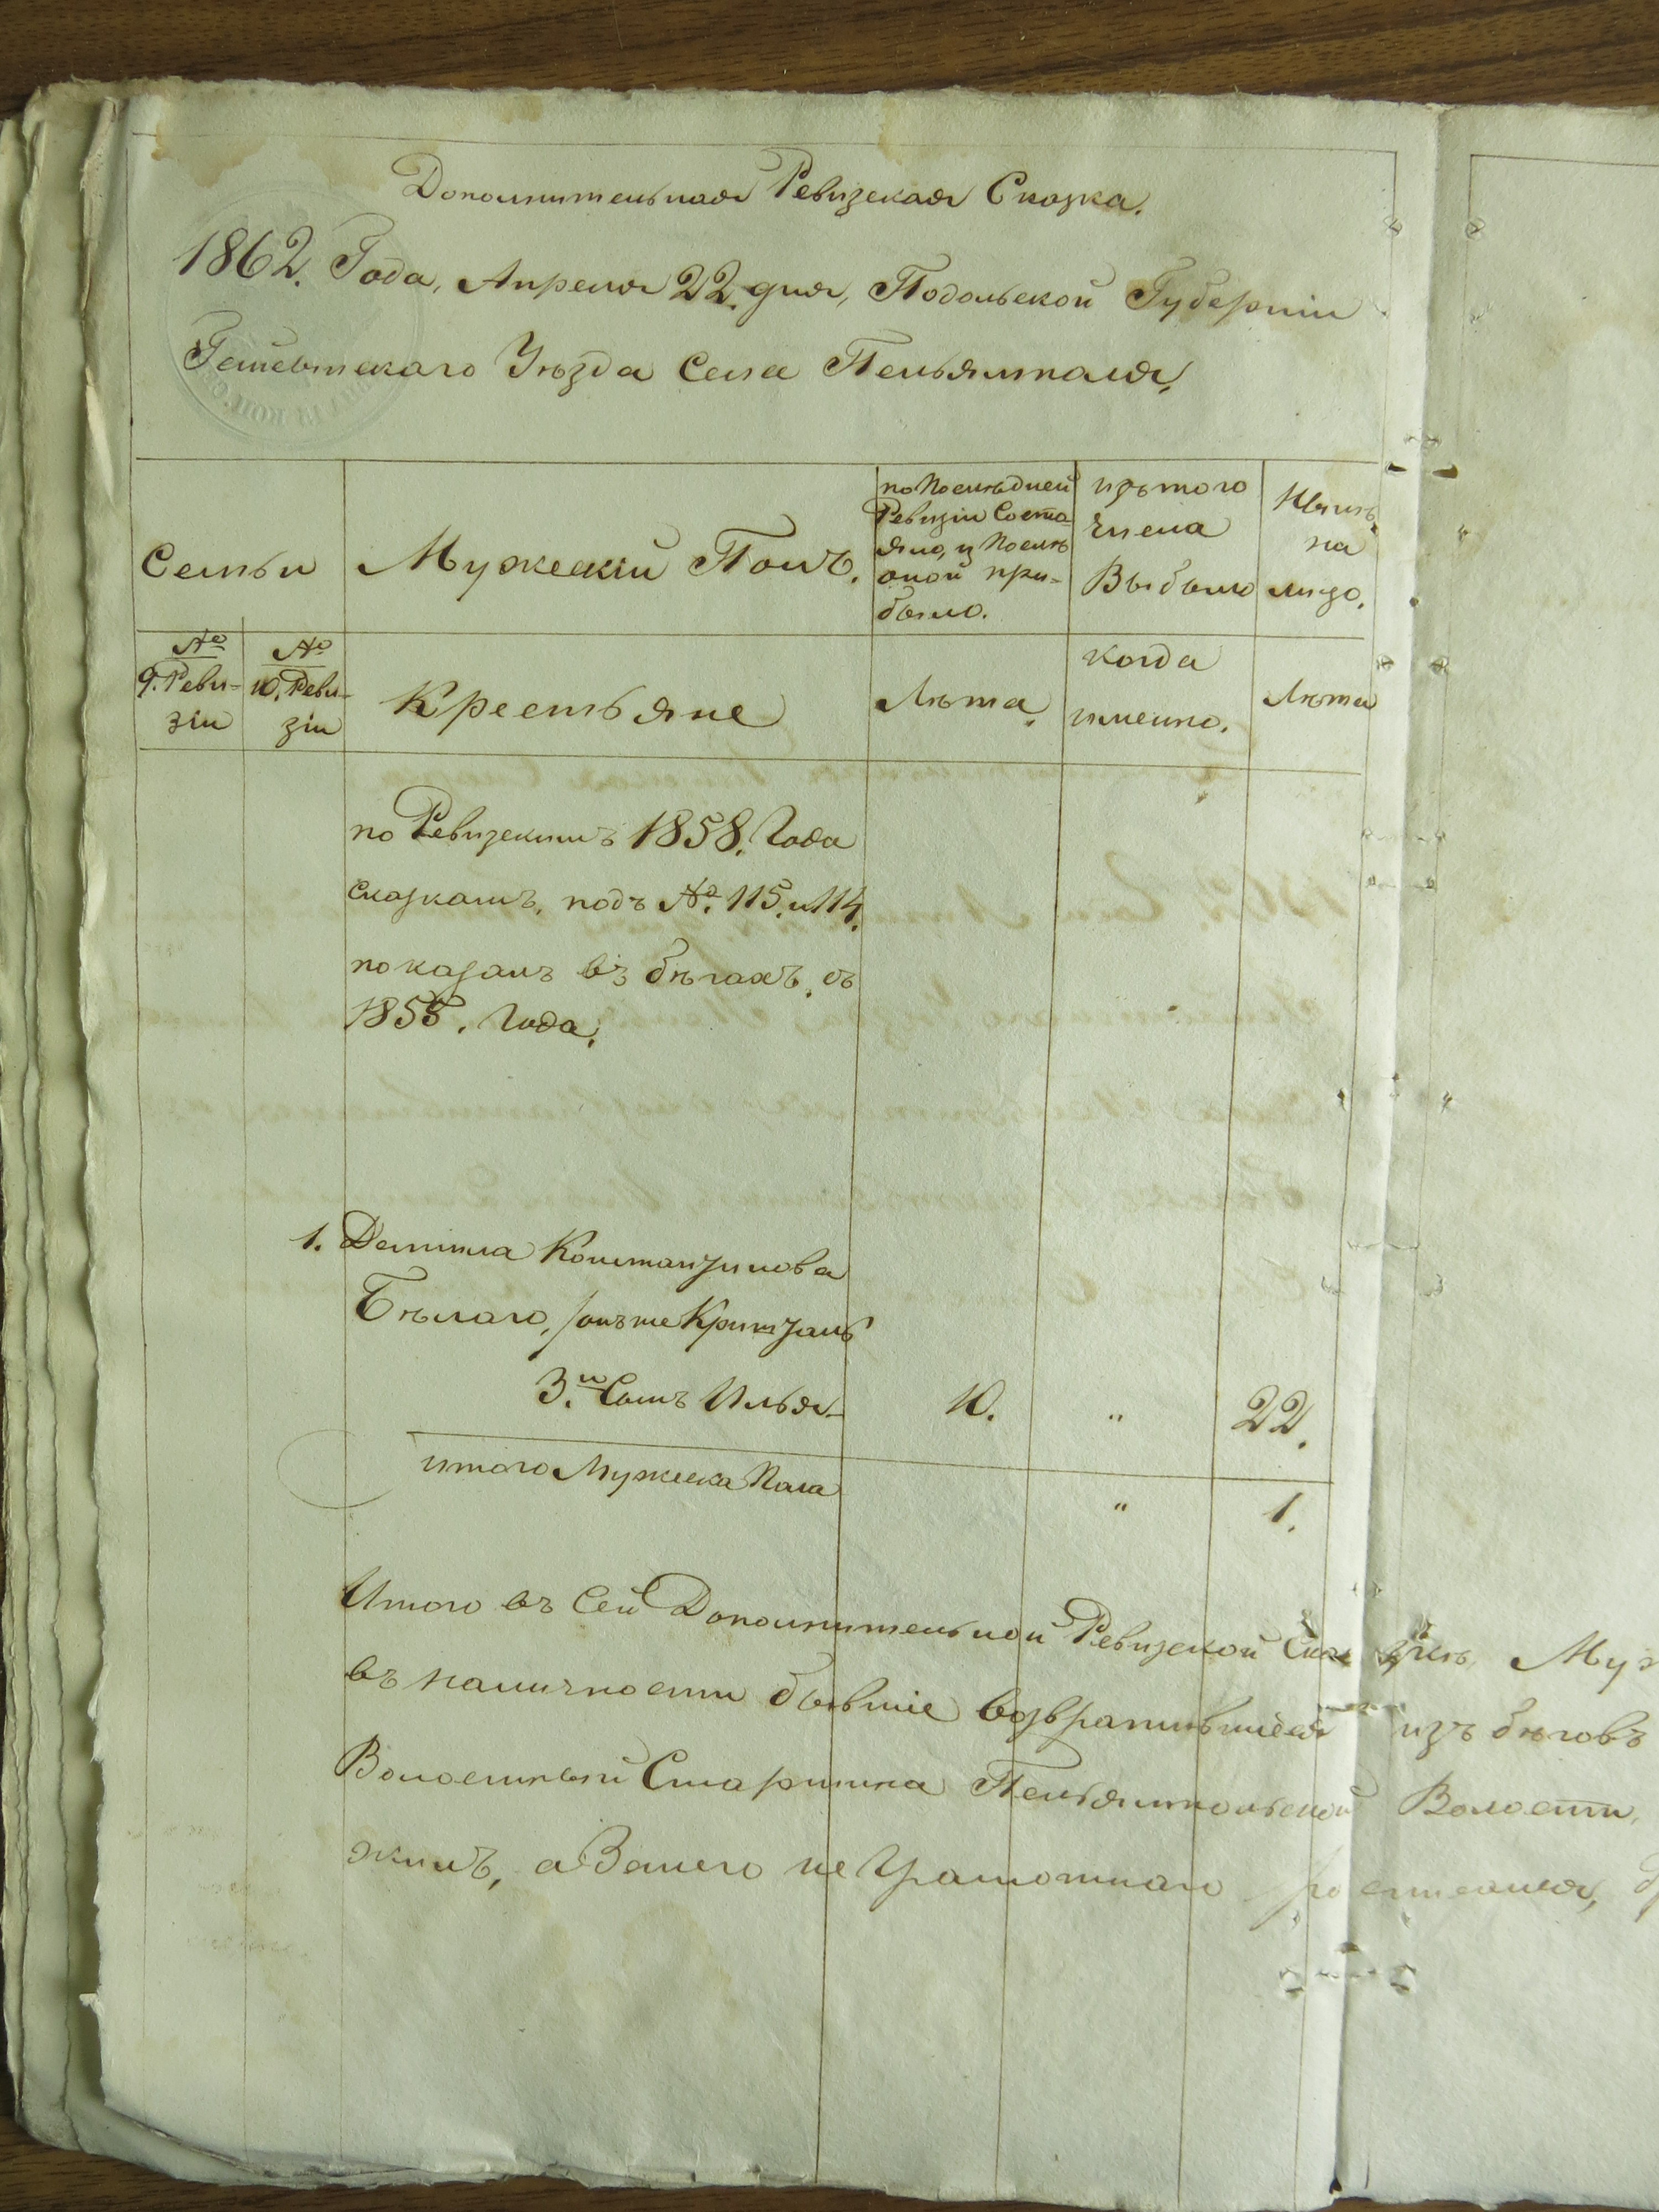 Дополнительная Ревизская Сказка.
1862. Года, Апреля 22. дня, Подольской Губерніи
Уѣзда Села
Семьи
Мужескій Полъ.
по Послѣдней
Ревизіи Состо-
яло, и Послѣ
оной при-
было.
изъ того
числа
Выбыло
Нынѣ,
на
лицо.
№
9. Реви-
зіи
№
10. Реви-
зіи
Крестьяне
Лѣта,
когда
именно.
Лѣта
по Ревизскимъ 1858. Года
сказкамъ, подъ №. 115. и 114.
показанъ въ бѣгахъ, съ
1855. Года.
1. Данила Константинова
Бѣлаго, онъ же
3.й Сынъ Илья
10.
"
22.
итого Мужеска Пола
"
1.
Итого въ Сей Дополнительной Ревизской Сказкѣ, Муж
въ наличности бывшіе возвратившіеся изъ бѣговъ
Волостный Старшина Волости,
а Вмего не Грамотнаго